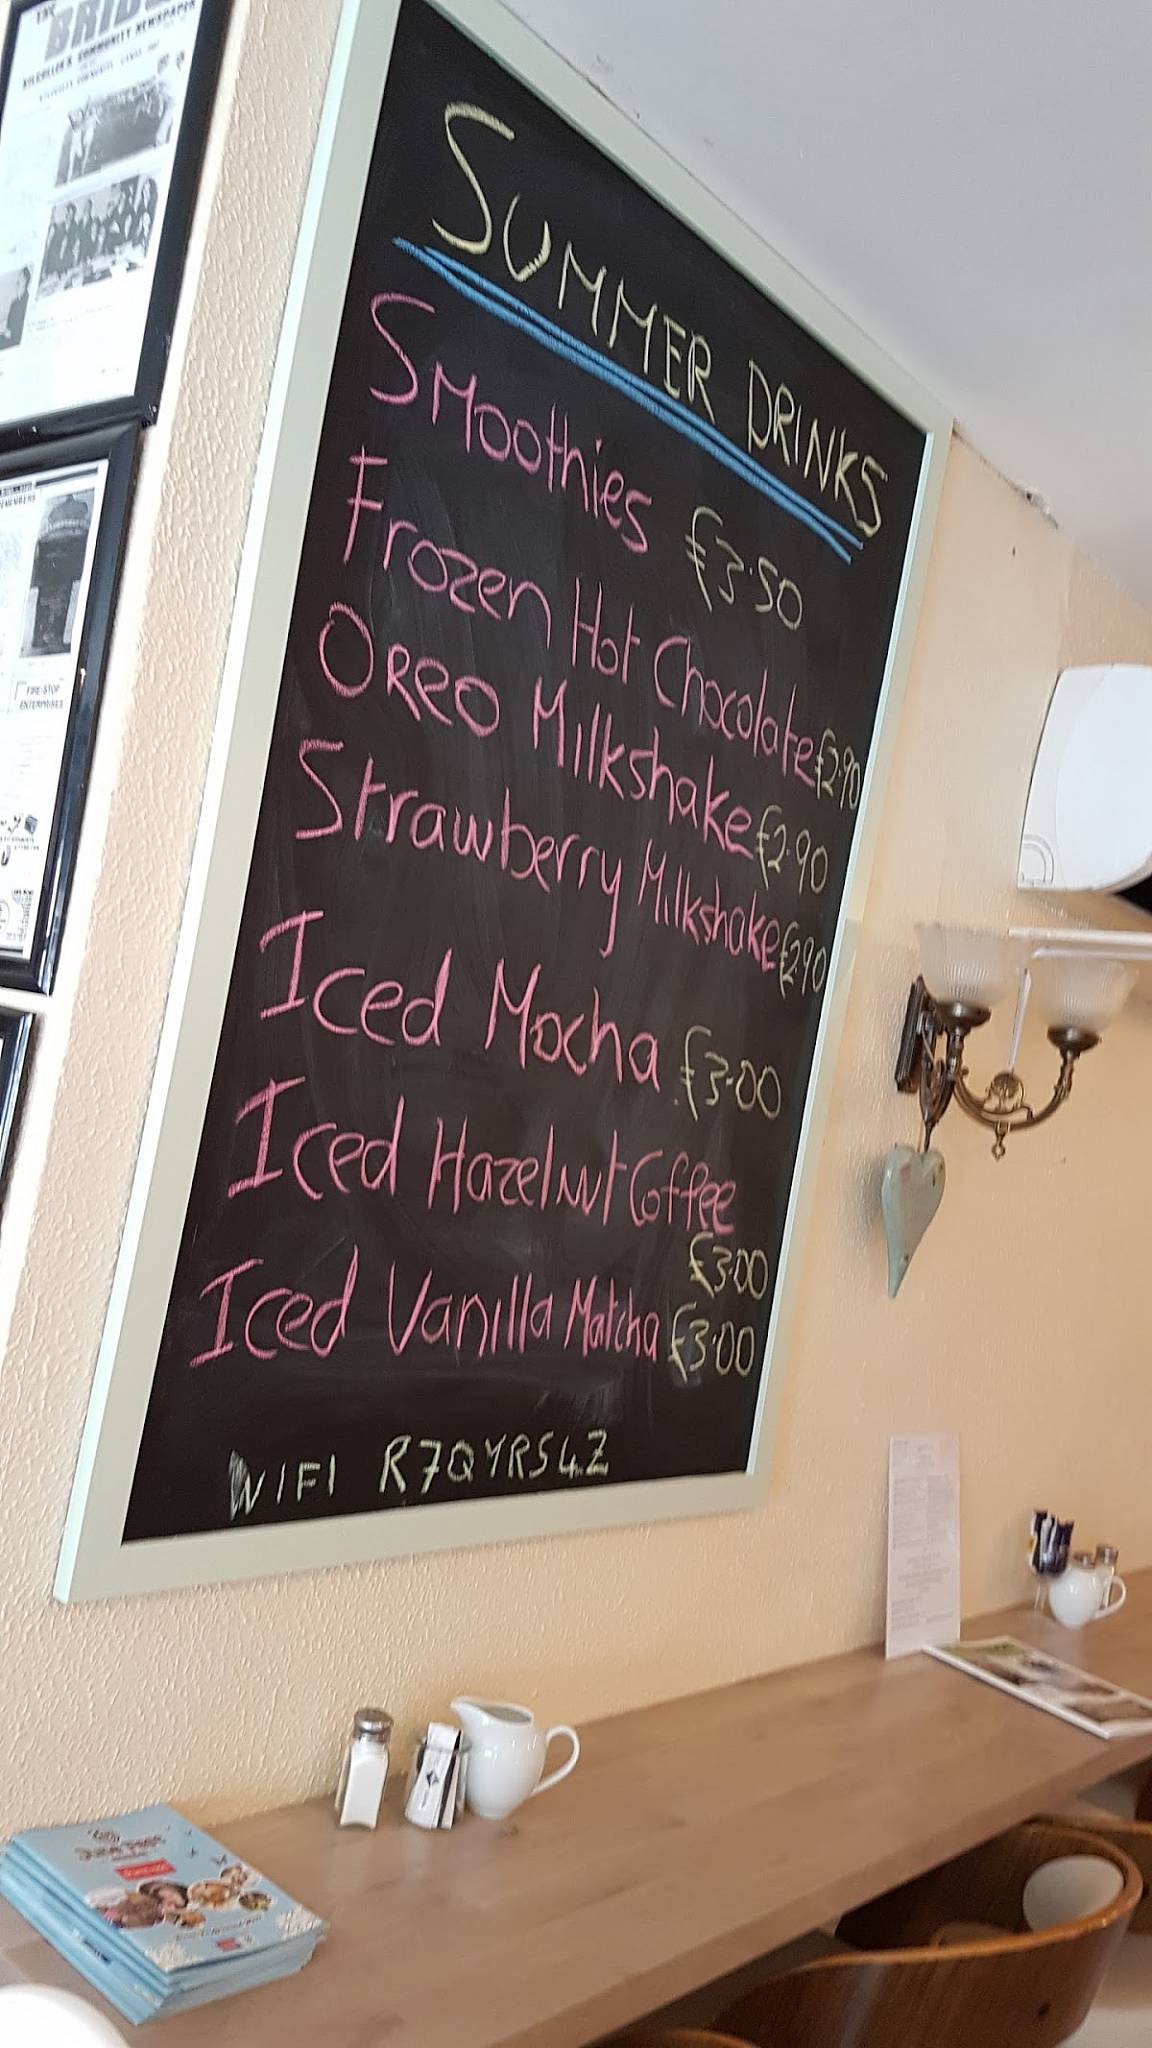 BRIDGE
KILCULLEN'S COMMUNITY NEWSPAPER
FIRE-STOP
ENTERPRISES
SUMMER DRINKS
Smoothies €3.50
Frozen Hot Chocolate €2.90
Oreo Milkshake €2.90
Strawberry Milkshake €2.90
Iced Mocha €3.00
Iced Hazelnut Coffee
€3.00
Iced Vanilla Matcha €3.00
WIFI R7QYRS4Z